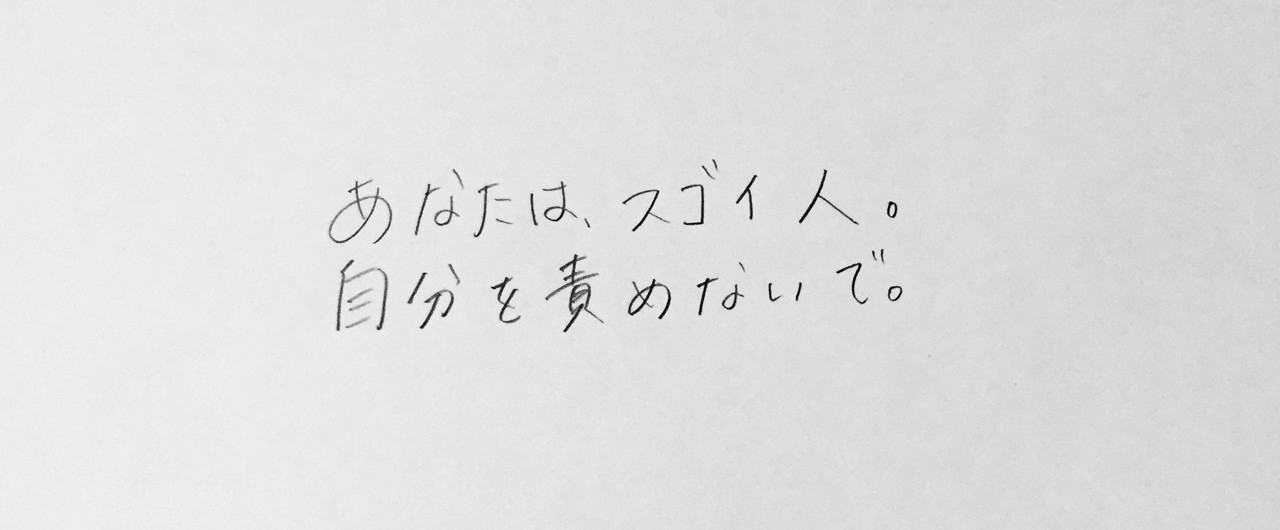 あなたは、スゴイ人。
自分を責めないで。